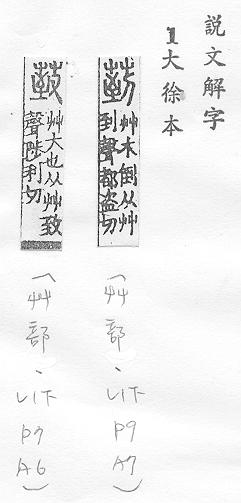 說文解字
1大徐本
菿
艸木倒从艸
到聲都盜切
艸大也从艸致
聲陟利切
(艸部、下 p9 A7)
(艸部、下 A6)